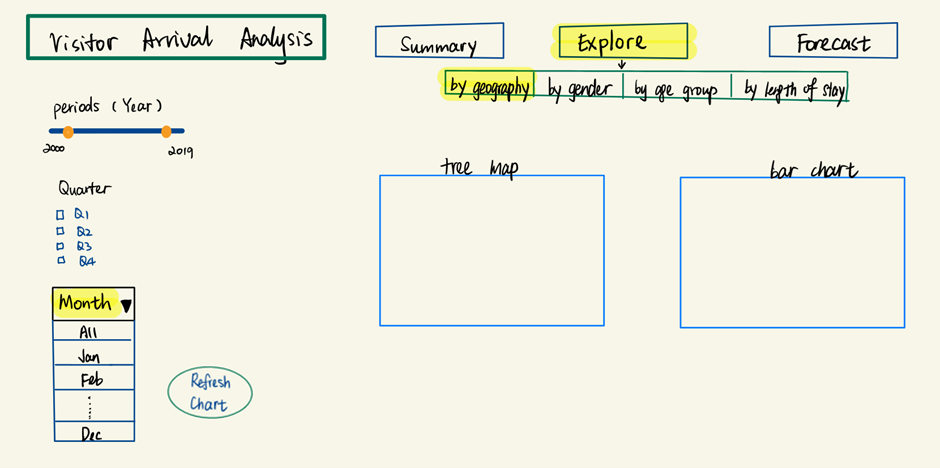 Visitor Arrival Analysis
Summary
Explore
Forecast
by geography
by gender
by age group
by length of stay
periods (Year)
2000
2019
Quarter
Q1
Q2
Q3
Q4
Month
All
Jan
Feb
Dec
Refresh
Chart
tree map
bar chart